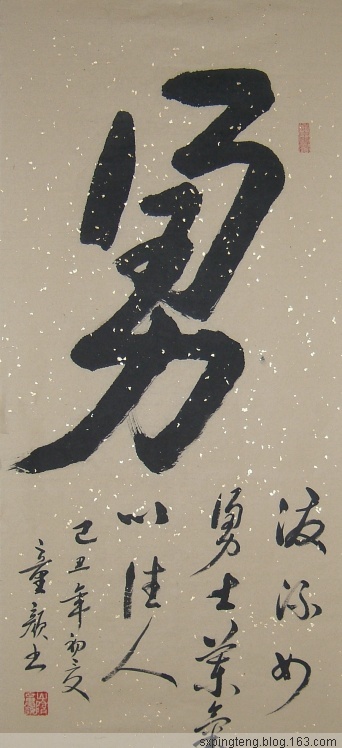 勇
流如
勇士蘭氣
以佳人
己丑年初夏
童颜书
sxpingteng.blog.163.com